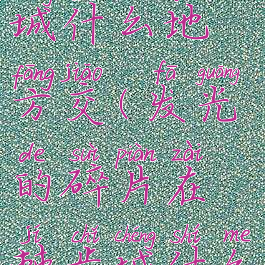 城什么地
fāng jiāo fā guāng
方交(发光
de suì piàn zài
的碎片在
jī chǐ chéng shí me